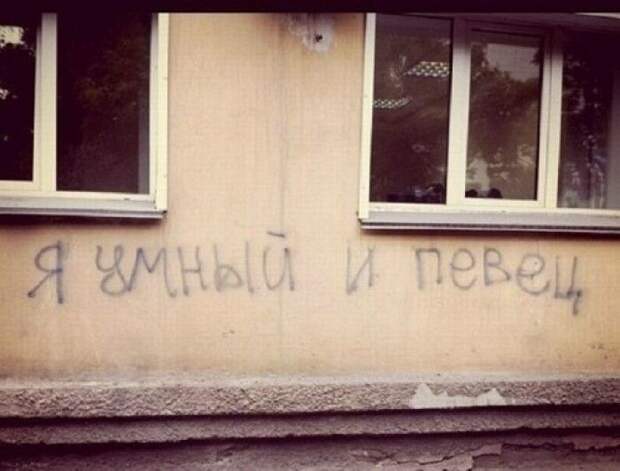 я умный и певец